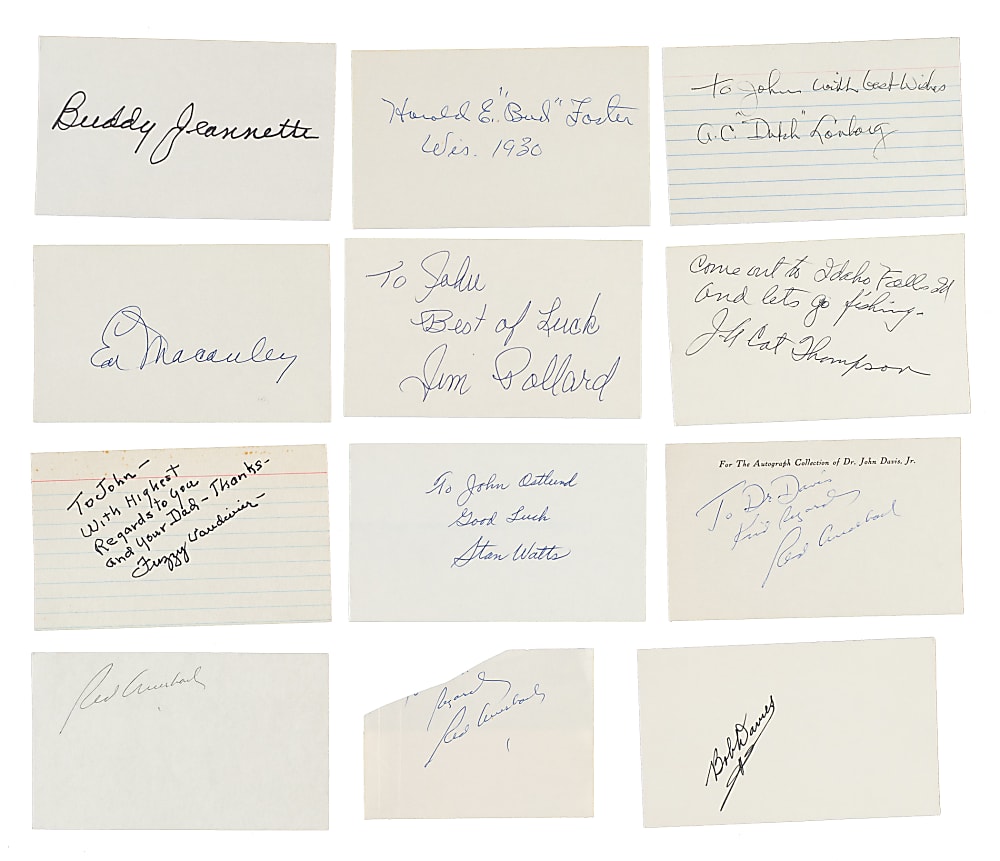 Buddy Jeannette
Harold E. "Bud" Foster
Wis. 1930
To John with best wishes
A.C. "Dutch" Lonborg
Ed Macauley
To John
Best of Luck
Jim Pollard
Come out to Idaho Falls Id
and lets go fishing-
J A Cat Thompson
To John-
With Highest
Regards to You
and your Dad-Thanks-
Fuzzy Vandivier-
To John Ostlund
Good Luck
Stan Watts
For The Autograph Collection of Dr. John Davis, Jr.
To Dr Davis
Kind Regards
Red Auerbach
Red Auerbach
Regards
Red Auerbach
Bob Davies